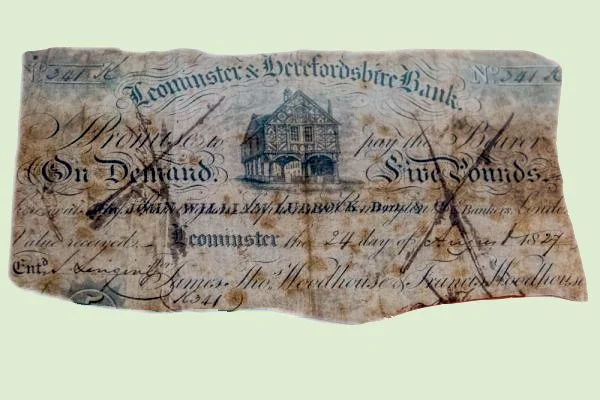 No 341 K No 341 K
Leominster & Herefordshire Bank.
I Promise to pay the Bearer
On Demand. Five Pounds.
JOHN WILLIAM LUBBOCK, Bart & Bankers, London
Value received. Leominster the 24 day of August 1827
Entd James, Thos. Woodhouse & Francis Woodhouse
K341